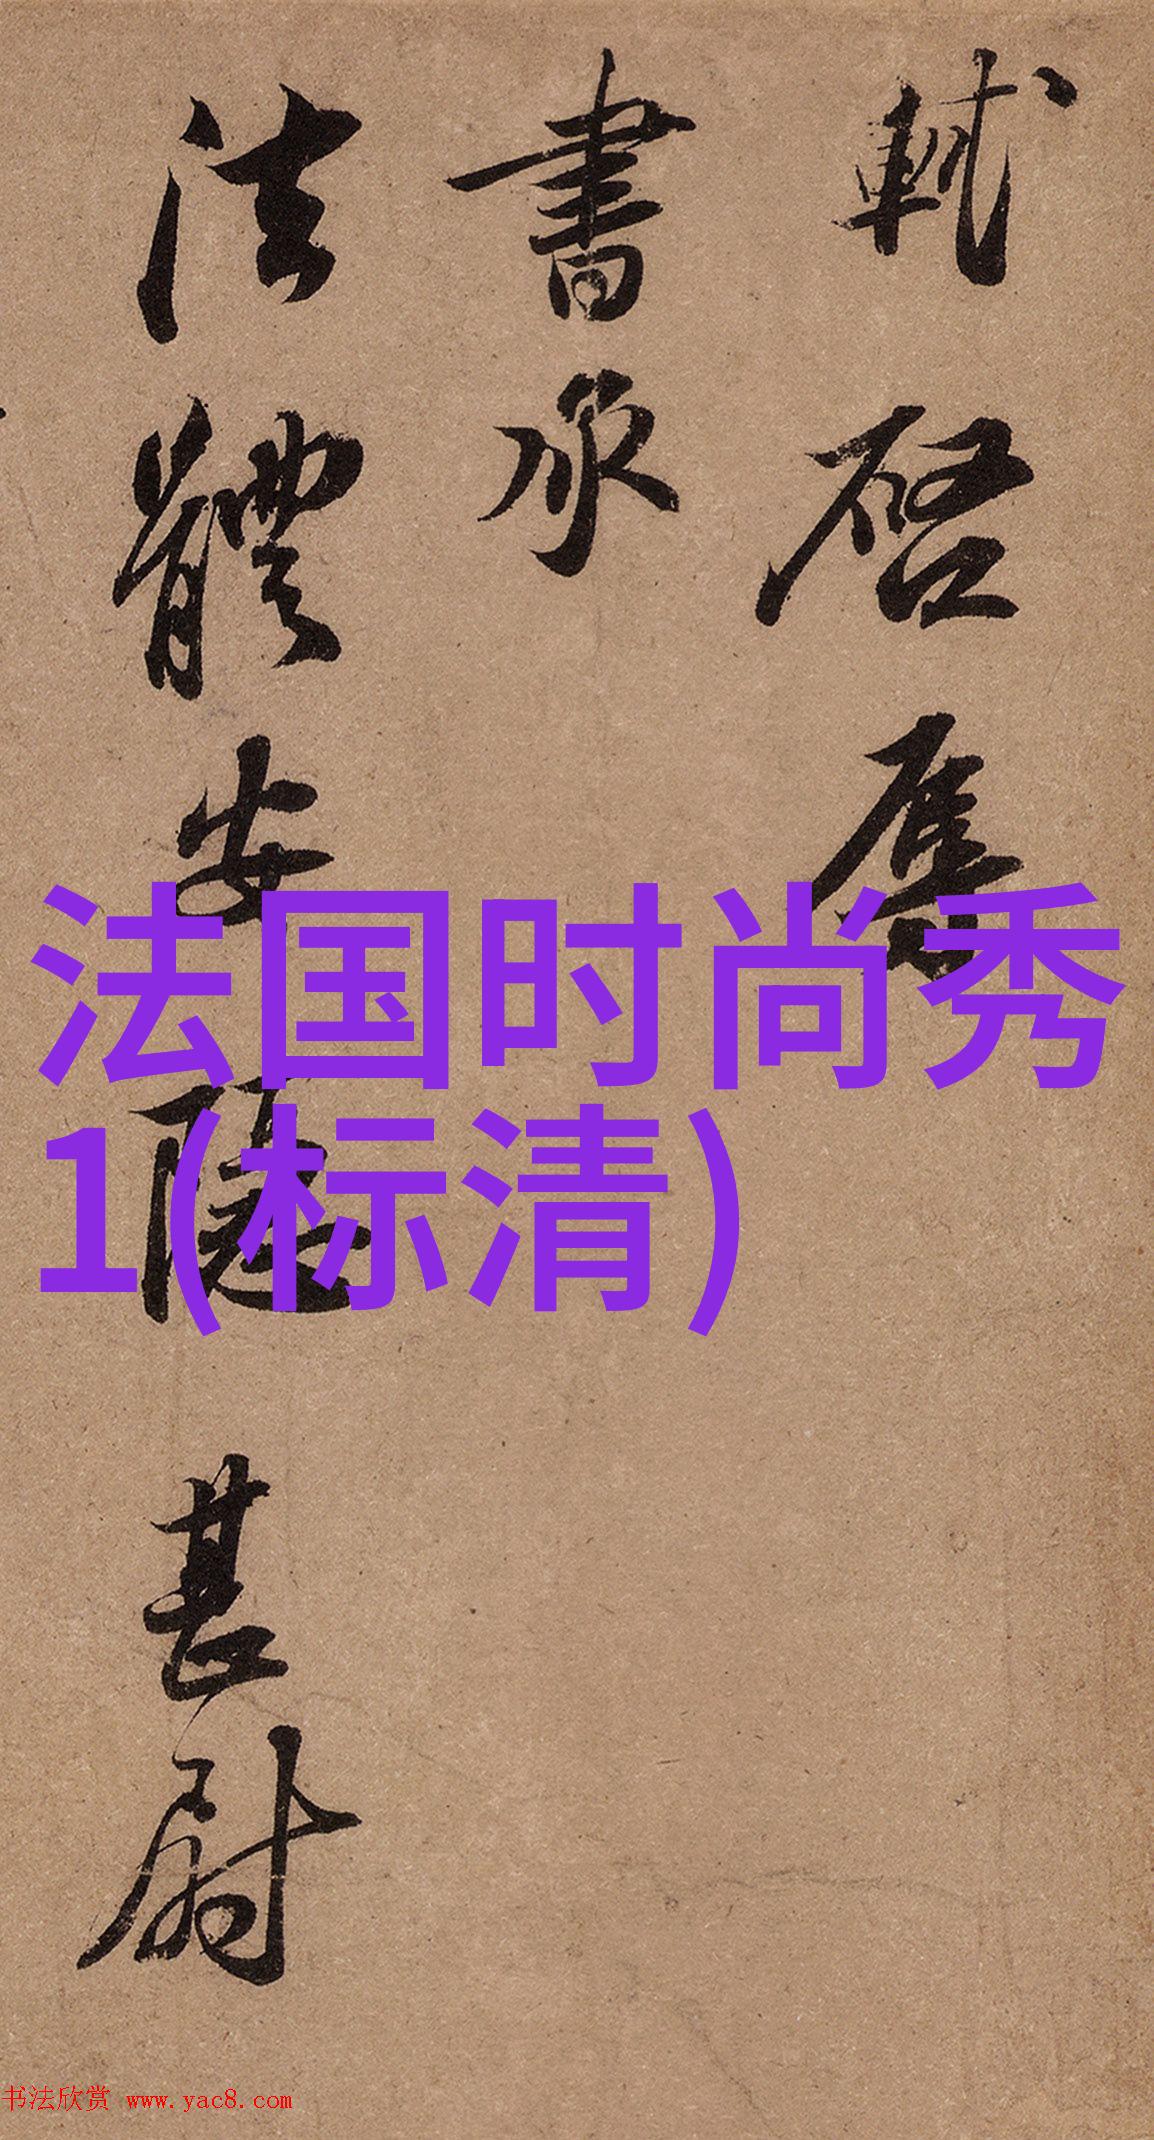 軾啓辱
書承
法體安隱甚尉
法国时尚秀
1(标清)
书法欣赏 www.yac8.com